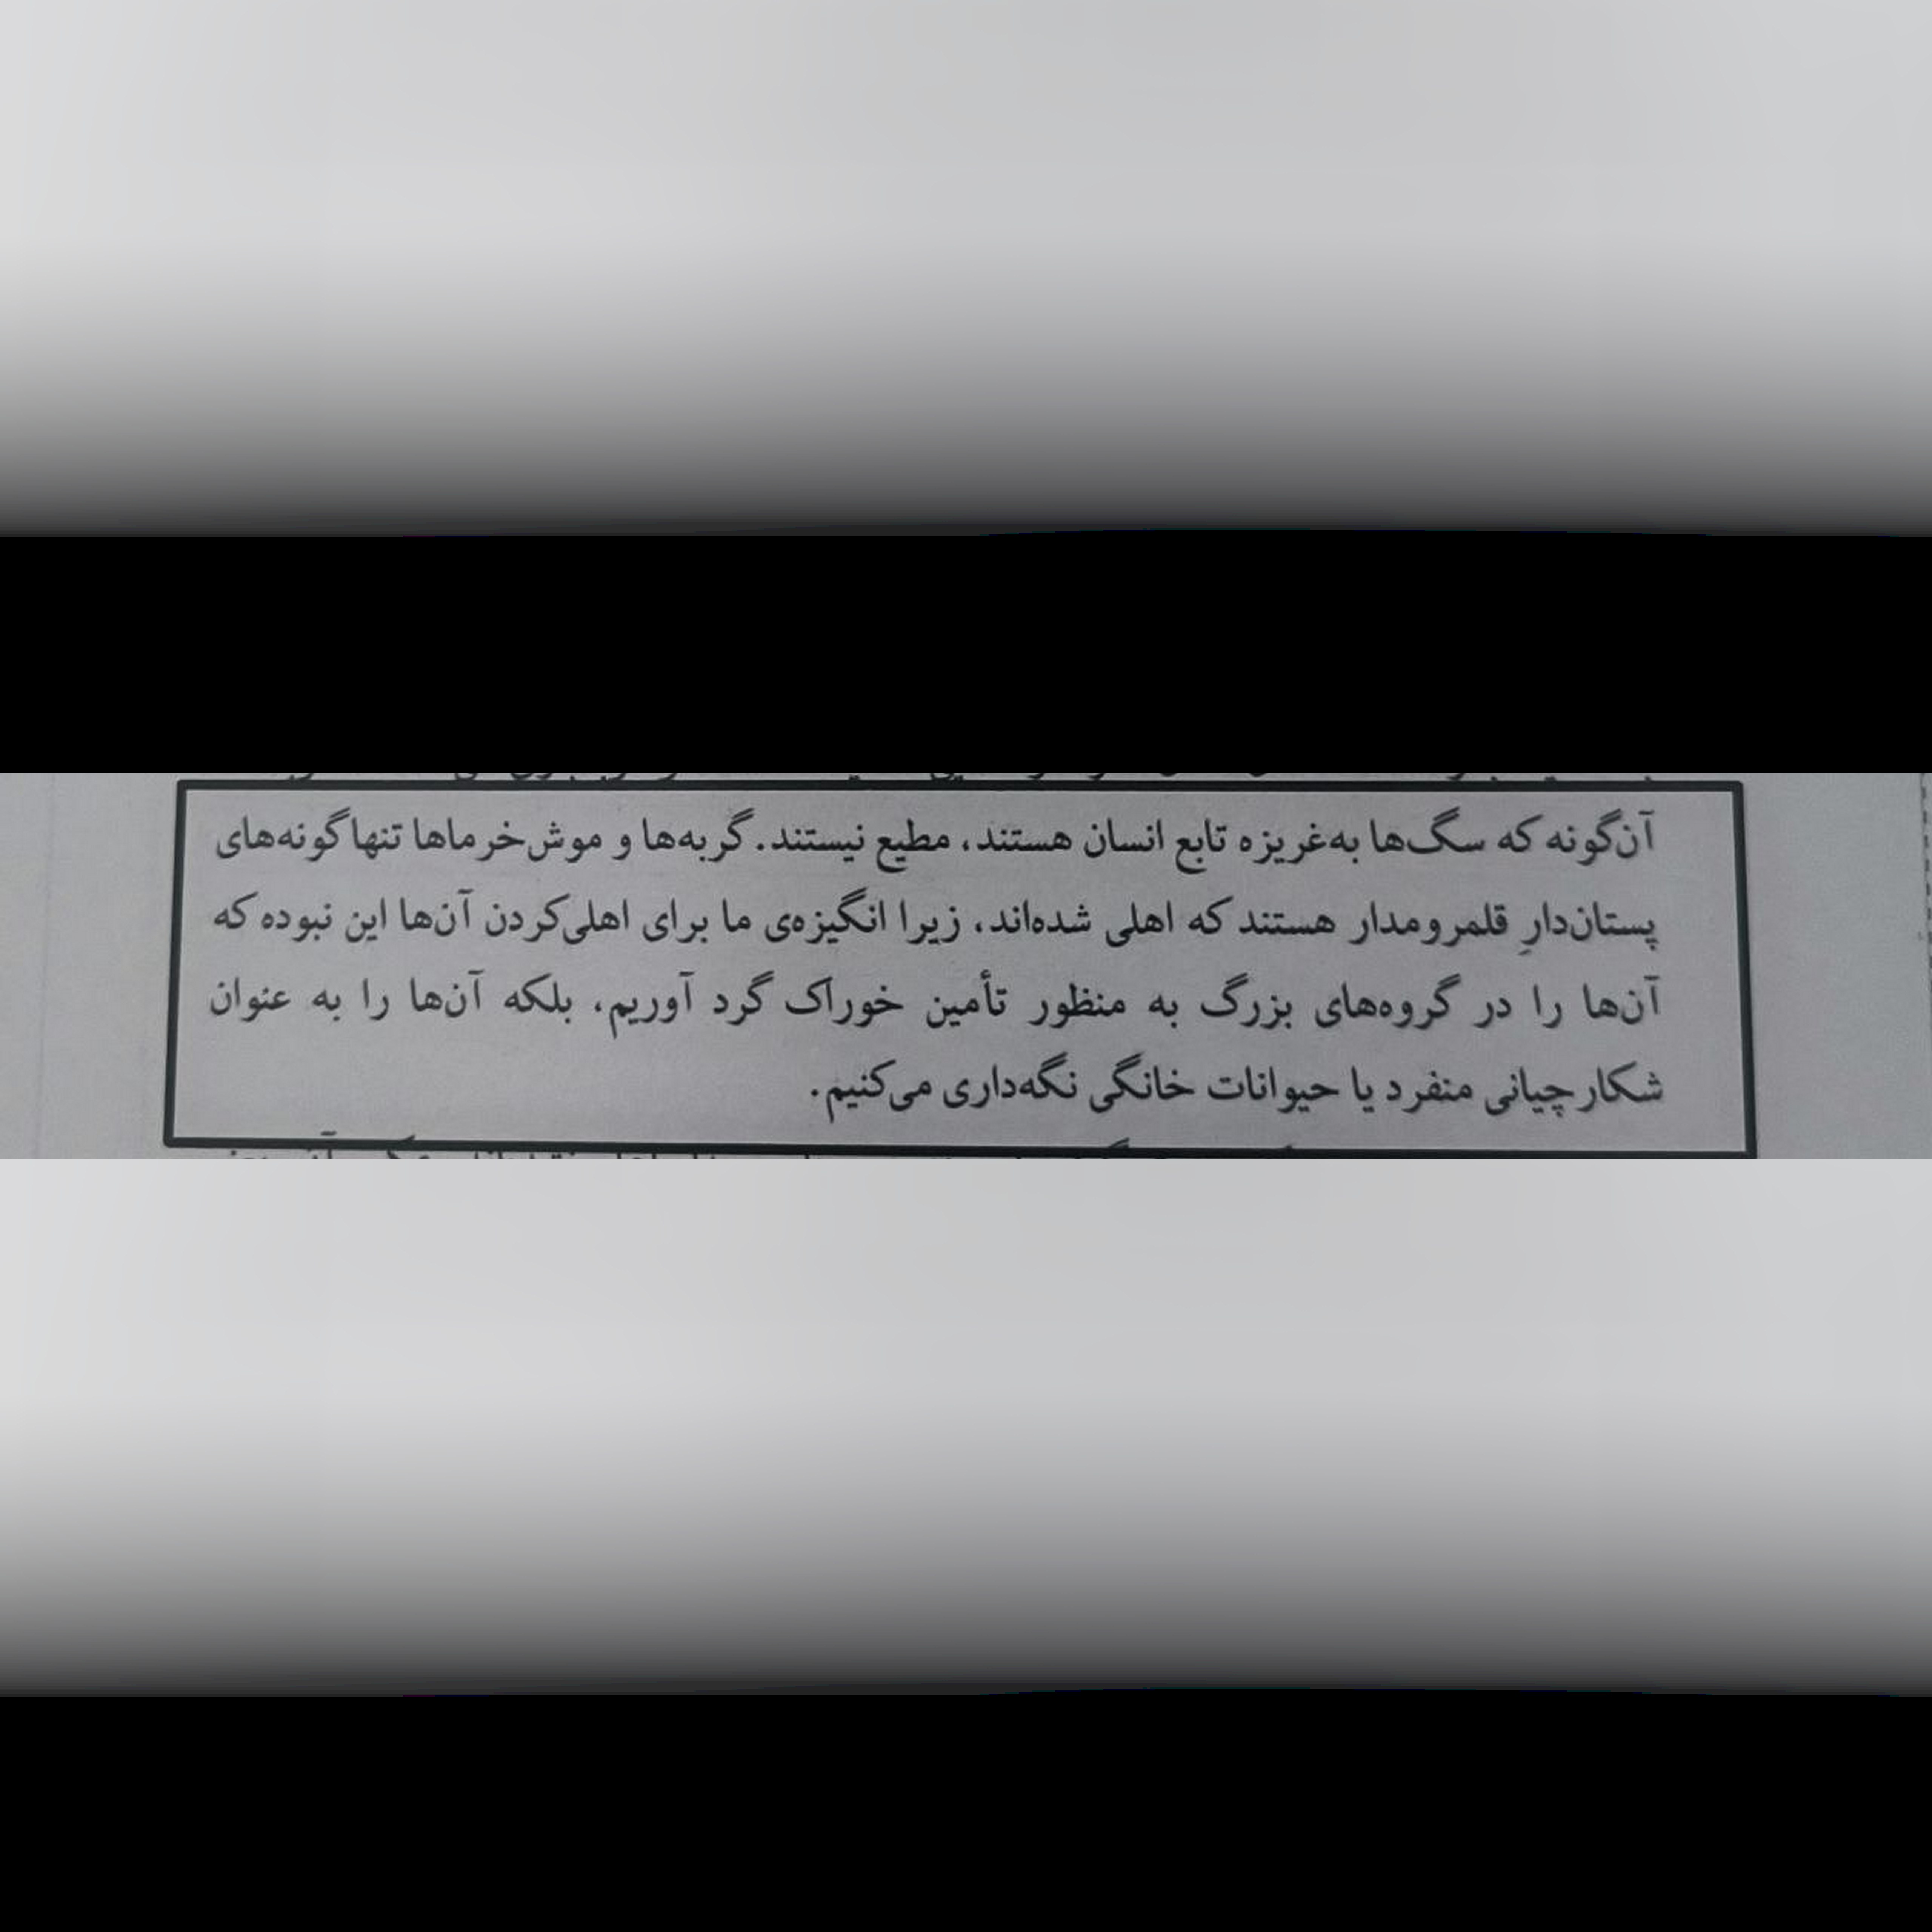 آن‌گونه که سگ‌ها به‌غریزه تابع انسان هستند، مطیع نیستند. گربه‌ها و موش‌خرماها تنها گونه‌های
پستان‌دارِ قلمرومدار هستند که اهلی شده‌اند، زیرا انگیزه‌ی ما برای اهلی‌کردن آن‌ها این نبوده که
آن‌ها را در گروه‌های بزرگ به منظور تأمین خوراک گرد آوریم، بلکه آن‌ها را به عنوان
شکارچیانی منفرد یا حیوانات خانگی نگه‌داری می‌کنیم.